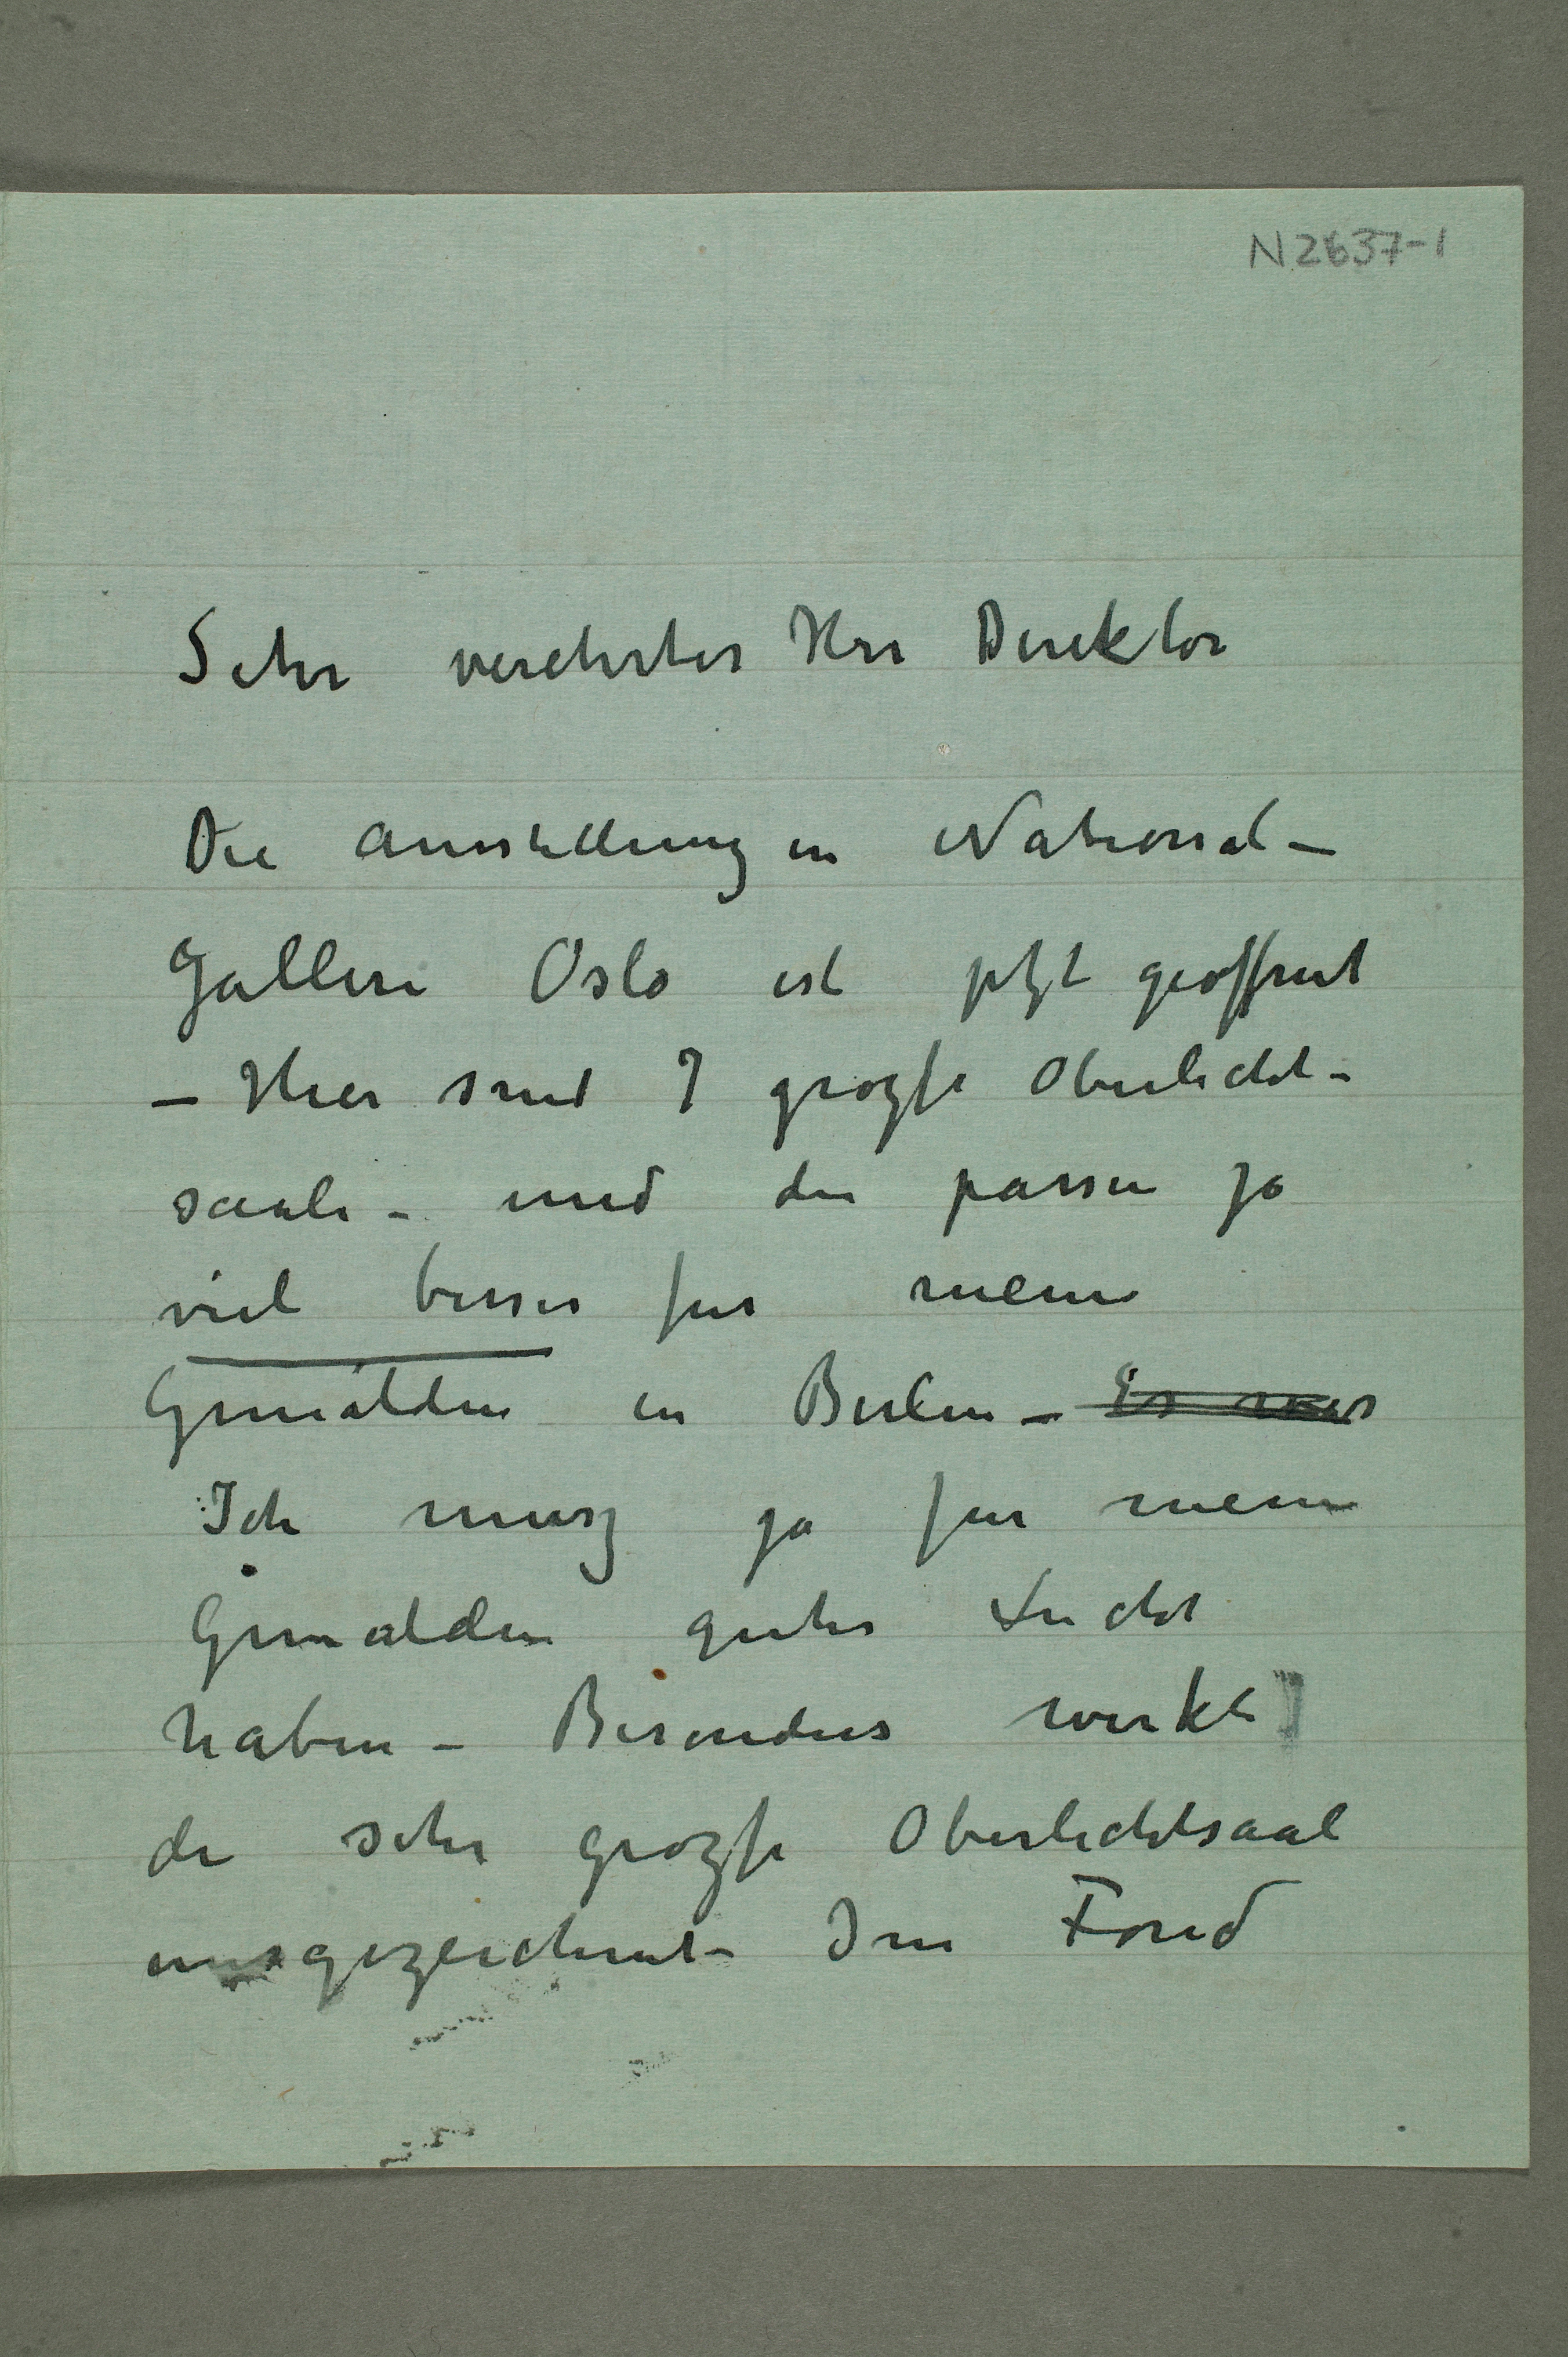 N 2637-1
Sehr verehrter Herr Direktor
Die Ausstellung in National–
Gallerie Oslo ist jetzt geöffnet
– Hier sind 7 grozse Oberlicht–
saale – und die passen ja
viel besser fur meine
Gemälden in Berlin – Es war
Ich musz ja fur meine
Gemalden gutes Licht
haben – Besonders wirkt
der sehr grozse Oberlichtsaal
ausgezeichnet – Im Fond